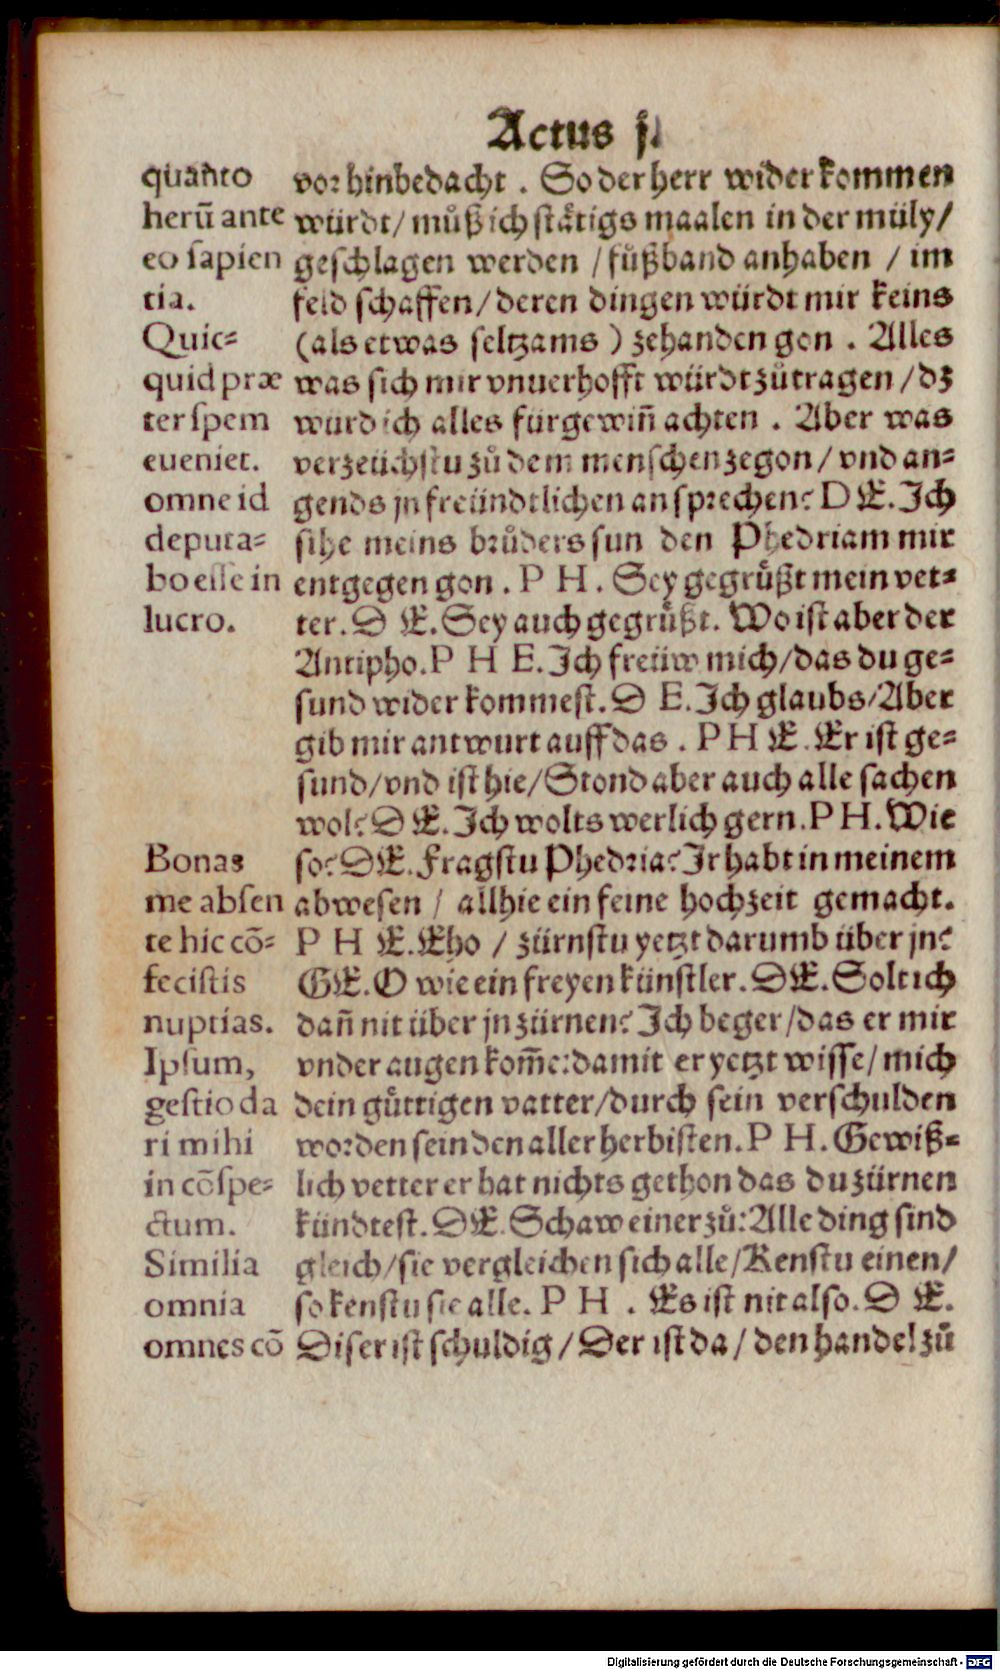 Actus j.
quanto
herū ante
eo sapien
tia.
Quic⸗
quid præ
ter spem
eueniet.
omne id
deputa⸗
bo esse in
lucro.
Bonas
me absen
te hic cō⸗
fecistis
nuptias.
Ipsum,
gestio da
ri mihi
in cōspe⸗
ctum.
Similia
omnia
omnes cō
vor hin bedacht . So der herr wider kommen
würdt/ můß ich stätigs maalen in der müly/
geschlagen werden / fůßband anhaben / im
feld schaffen/ deren dingen würdt mir keins
(als etwas seltzams ) zehanden gon . Alles
was sich mir vnuerhofft würdt zůtragen / dz
würd ich alles für gewiñ achten . Aber was
verzeüchstu zů dem menschen zegon / vnd an⸗
gends jn freündtlichen ansprechen? D E. Ich
sihe meins brůders sun den Phedriam mir
entgegen gon . P H . Sey gegrůßt mein vet⸗
ter. D E. Sey auch gegrůßt. Wo ist aber der
Antipho. P H E. Ich freüw mich/ das du ge⸗
sund wider kommest. D E. Ich glaubs/ Aber
gib mir antwurt auff das . P H E. Er ist ge⸗
sund/ vnd ist hie/ Stond aber auch alle sachen
wol? D E. Ich wolts werlich gern. P H. Wie
so? DE. Fragstu Phedria? Ir habt in meinem
abwesen / allhie ein feine hochzeit gemacht.
P H E. Eho / zürnstu yetzt darumb über jn?
GE. O wie ein freyen künstler. DE. Solt ich
dañ nit über jn zürnen? Ich beger/ das er mir
vnder augen kom̄e: damit er yetzt wisse/ mich
dein gůttigen vatter/ durch sein verschulden
worden sein den aller herbisten. P H. Gewiß⸗
lich vetter er hat nichts gethon das du zürnen
kündtest. DE. Schaw einer zů: Alle ding sind
gleich/ sie vergleichen sich alle/ Kenstu einen/
so kenstu sie alle. P H . Es ist nit also. D E.
Diser ist schuldig / Der ist da / den handel zů
Digitalisierung gefördert durch die Deutsche Forschungsgemeinschaft - DFG